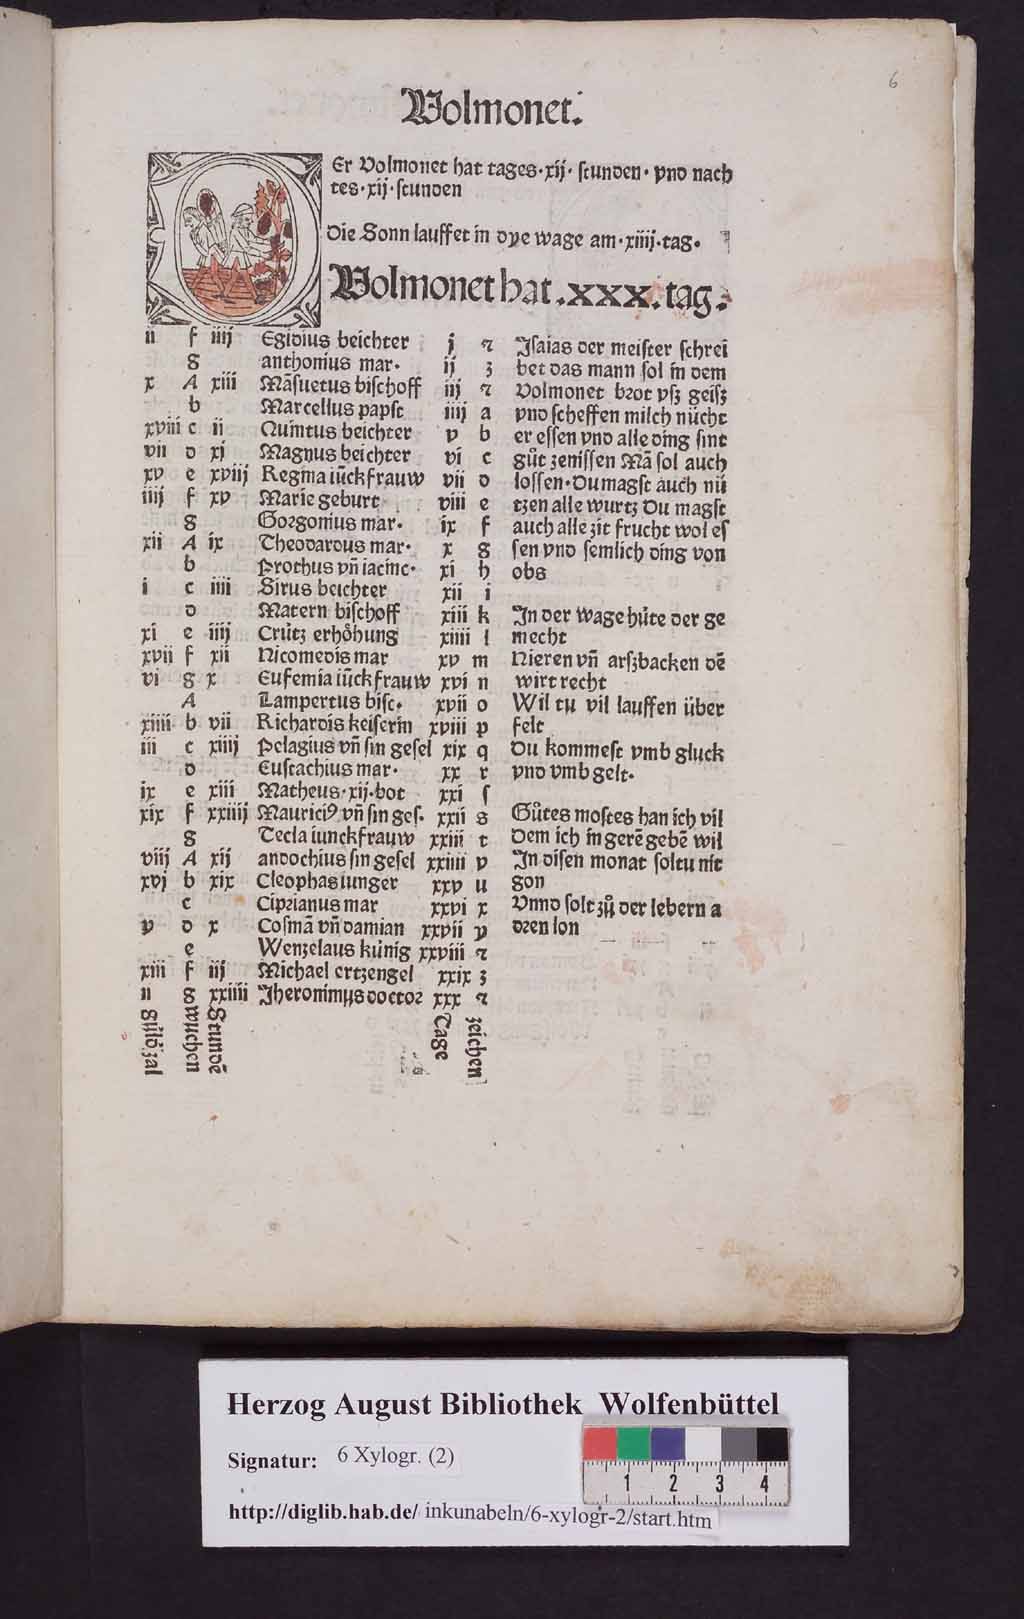 6
Volmonet.
Er Volmonet hat tages·xij· stunden· vnd nach
tes·xij·stunden
Die Sonn lauffet in dye wage am·xiiij·tag·
Volmonet hat .xxx. tag.
ii f iiij Egidius beichter j ꝛ
g anthonius mar· ij ʒ
x A xiii Mãsuetus bischoff iij ꝛ
b Marcellus papst iiij a
xviii c ii Quintus beichter v b
vii d xj Magnus beichter vi c
xv e xviij Regina iũckfrauw vii d
iiij f xv Marie geburt viii e
g Gorgonius mar· ix f
xii A ix Theodardus mar· x g
b Prothus vñ iacinc· xi h
i c iiii Sirus beichter xii i
d Matern bischoff xiii k
xi e iiij Crütz erhöhung xiiii l
xvii f xii Nicomedis mar xv m
vi g x Eufemia iũckfrauw xvi n
A Lampertus bisc· xvii o
xiiii b vii Richardis keiserin xviii p
iii c xiiij Pelagius vñ sin gesel xix q
d Eustachius mar· xx r
ix e xiii Matheus·xij·bot xxi ſ
xix f xxiiij Mauriciꝰ vñ sin ges· xxii s
g Tecla iunckfrauw xxiii t
viij A xij andochius sin gesel xxiiii v
xvj b xix Cleophas iunger xxv u
c Ciprianus mar xxvi x
v d x Cosmã vñ damian xxvii y
e Wenzelaus künig xxviii ꝛ
xiii f iij Michael ertzengel xxix ʒ
ii g xxiiii Jheronimus doctor xxx ꝛ
güldzal
wuchen
Stundẽ
Tage
zeichen
Jsaias der meister schrei
bet das mann sol in dem
Volmonet brot vsz geisz
vnd scheffen milch nücht
er essen vnd alle ding sint
gůt zenissen Mã sol auch
lossen·Du magst auch nü
tzen alle wurtz Du magst
auch alle zit frucht wol es
sen vnd semlich ding von
obs
Jn der wage hüte der ge
mecht
Nieren vñ arszbacken dẽ
wirt recht
Wil tu vil lauffen über
felt
Du kommest vmb gluck
vnd vmb gelt·
Gůtes mostes han ich vil
Dem ich in gerẽ gebẽ wil
Jn disen monat soltu nit
gon
Vnnd solt zů der lebern a
dren lon
Herzog August Bibliothek Wolfenbüttel
Signatur: 6 Xylogr. (2)
1 2 3 4
http://diglib.hab.de/ inkunabeln/6-xylogr-2/start.htm